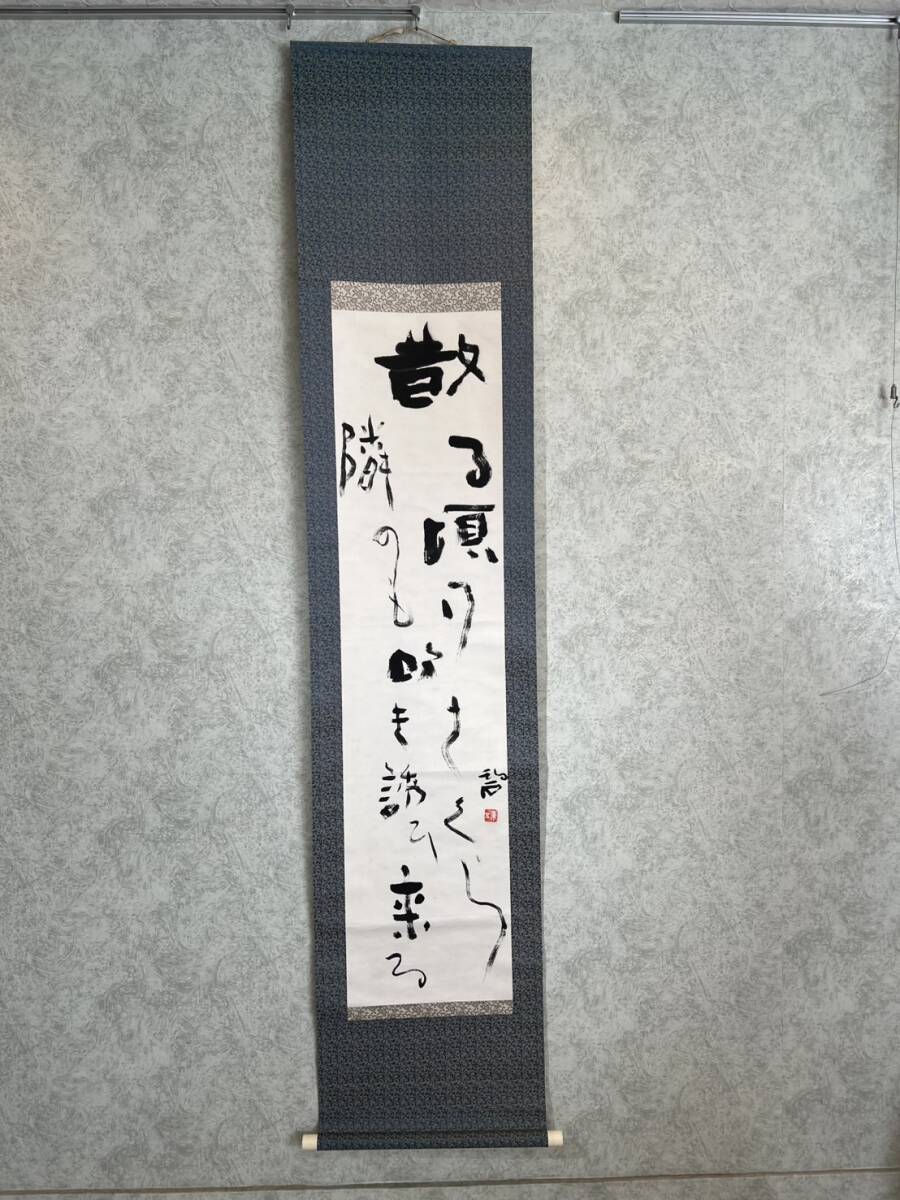 散る頃乃さくら
隣のも吹き誘ひ来る
碧